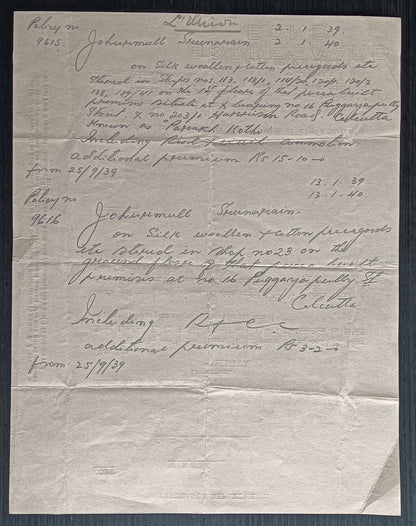 L'Union
Policy no 2.1.39
9615 Johurmull Sreenarain 2.1.40
on Silk woollen & cotton piecegoods etc
stored in Shops nos 113, 112/1, 114/20, 120/1, 120/2
138, 139/141 on the 1st floor of that pucca built
premises situate at & being no 16 Puggeyaputty
Street & no 203/1 Harrison Road, Calcutta
known as "Parakh Kothi
Including Riot & civil commotion
additional premium Rs 15-10-0
from 25/9/39
13.1.39
Policy no 13.1.40
9616
Johurmull Sreenarain
on Silk woollen & cotton piecegoods
etc stored in shop no 23 on the
ground floor of that pucca built
premises at no 16 Puggeyaputty St
Calcutta
Including R & C.
additional premium Rs 3-2-0
from 25/9/39